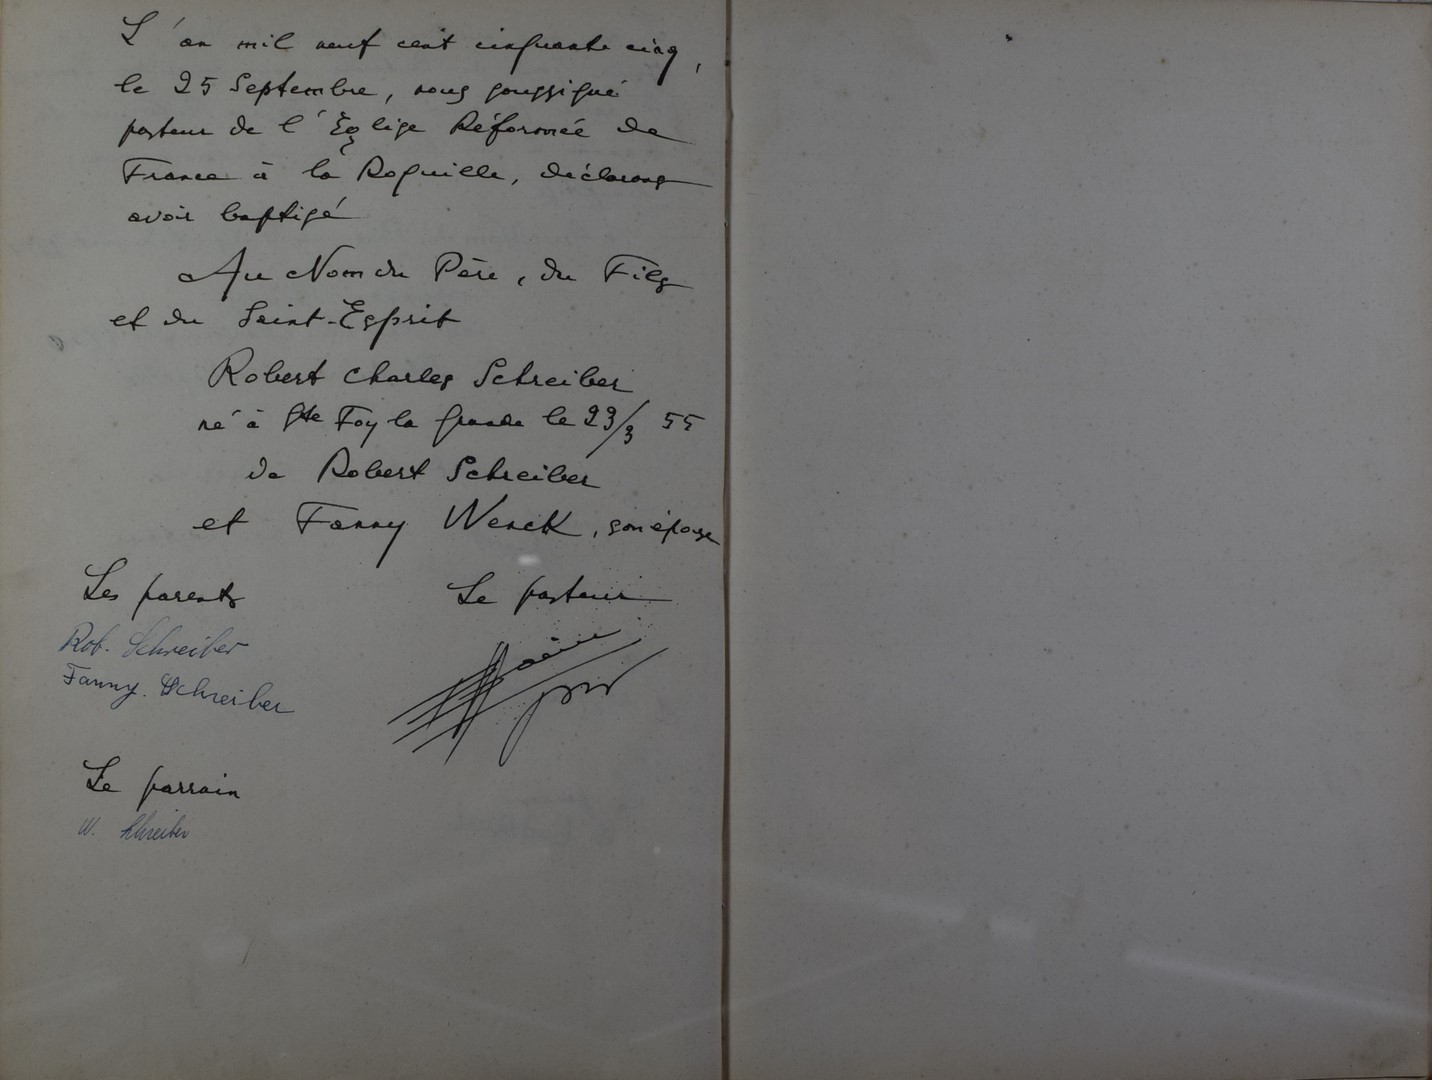 L'an mil neuf cent cinquante cinq,
le 25 Septembre, nous soussigné
pasteur de l'Eglise Réformée de
France à la Roquille, déclarons
avoir baptisé
Au Nom du Père, du Fils
et du Saint-Esprit
Robert Charles Schreiber
né à Ste Foy la Grande le 23/3 55
de Robert Schreiber
et Fanny Wenck, son épouse
Les parents
Le pasteur
Rob. Schreiber
Fanny. Schreiber
Le parrain
W. Schreiber